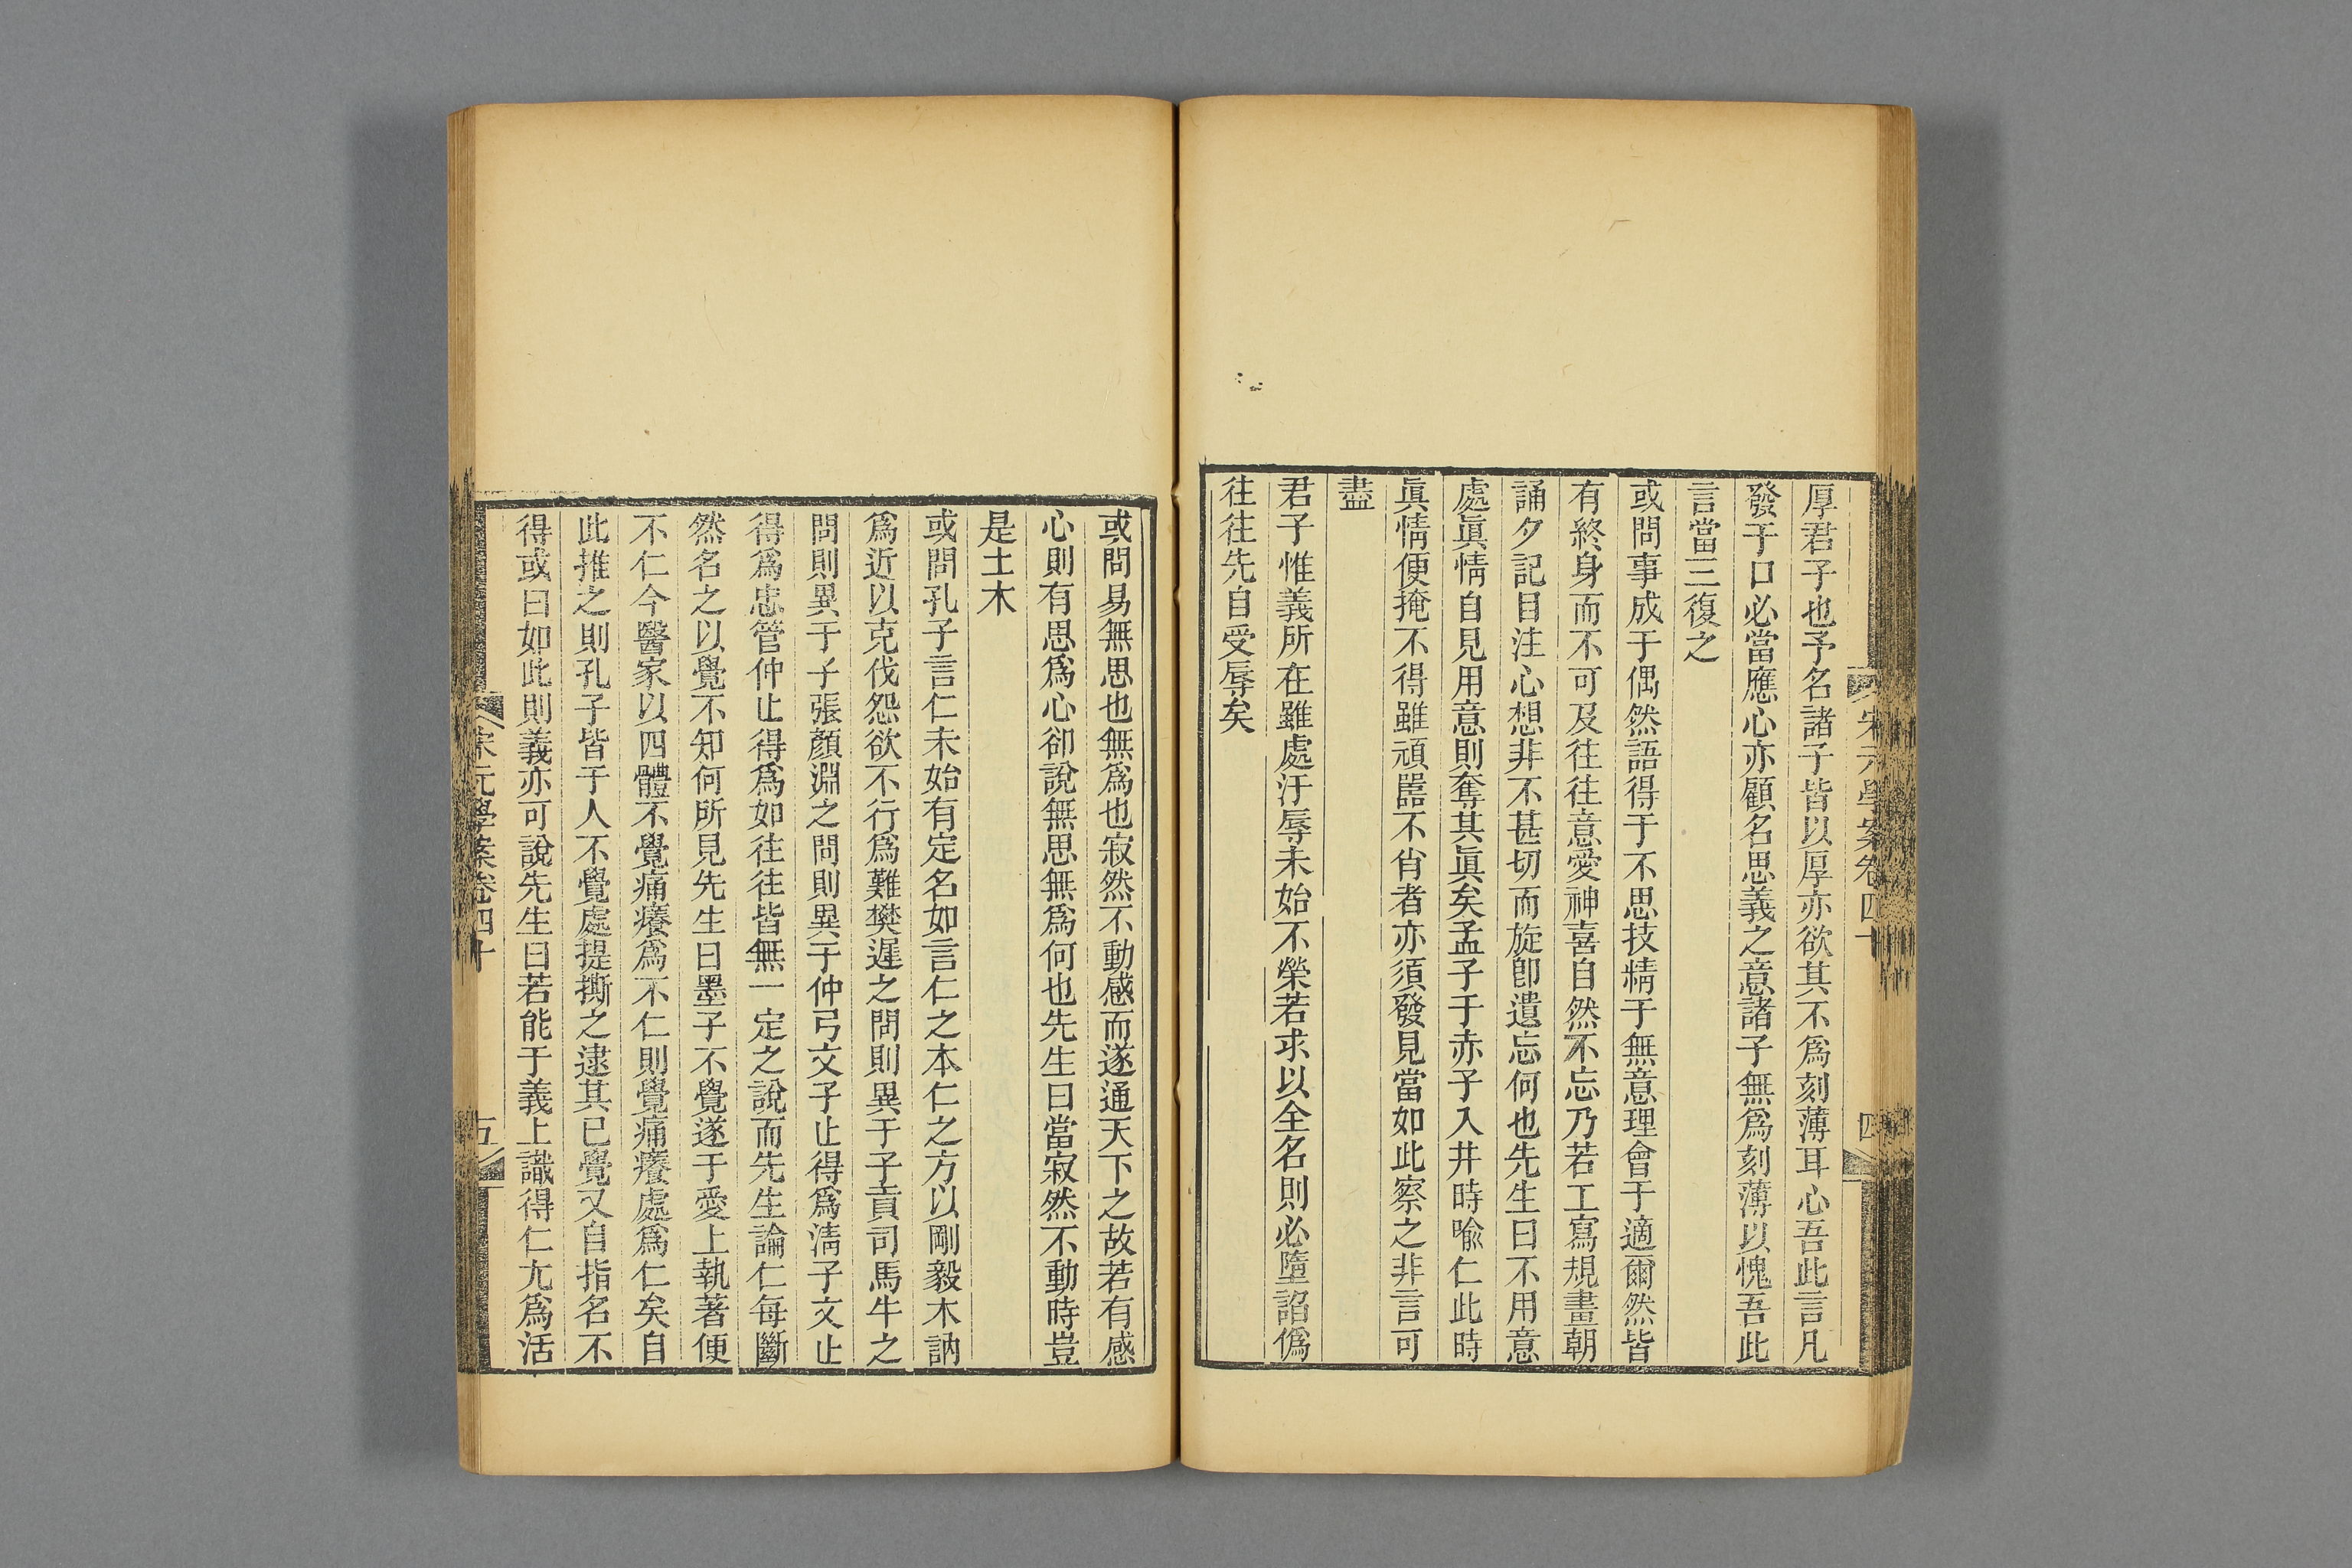 厚君子也予名諸子皆以厚亦欲其不爲刻薄耳心吾此言凡
發于口必當應心亦顧名思義之意諸子無爲刻薄以愧吾此
言當三復之
或問事成于偶然語得于不思技精于無意理會于適爾然皆
有終身而不可及往往意愛神喜自然不忘乃若工寫規畫朝
誦夕記目注心想非不甚切而旋卽遺忘何也先生曰不用意
處眞情自見用意則奪其眞矣孟子于赤子入井時喩仁此時
眞情便掩不得雖頑嚚不肖者亦須發見當如此察之非言可
盡
君子惟義所在雖處汙辱未始不榮若求以全名則必墮諂僞
往往先自受辱矣
宋元學案卷四十
四
或問易無思也無爲也寂然不動感而遂通天下之故若有感
心則有思爲心卻說無思無爲何也先生曰當寂然不動時豈
是土木
或問孔子言仁未始有定名如言仁之本仁之方以剛毅木訥
爲近以克伐怨欲不行爲難樊遲之問則異于子貢司馬牛之
問則異于子張顏淵之問則異于仲弓文子止得爲淸子文止
得爲忠管仲止得爲如往往皆無一定之說而先生論仁每斷
然名之以覺不知何所見先生曰墨子不覺遂于愛上執著便
不仁今醫家以四體不覺痛癢爲不仁則覺痛癢處爲仁矣自
此推之則孔子皆于人不覺處提撕之逮其已覺又自指名不
得或曰如此則義亦可說先生曰若能于義上識得仁尤爲活
宋元學案卷四十
五